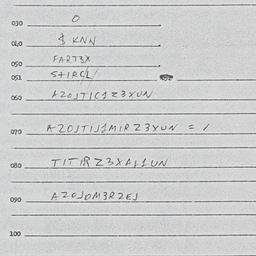 030 O
040 $ KNN
050 FART3X
051 S+IRCL/
050 AZOJTIC1Z3XUN
070 AZOJTIJ1MIRZ3XUN = /
080 TITIRZ3XAL1UN
090 AZOJOM3RZEJ
100